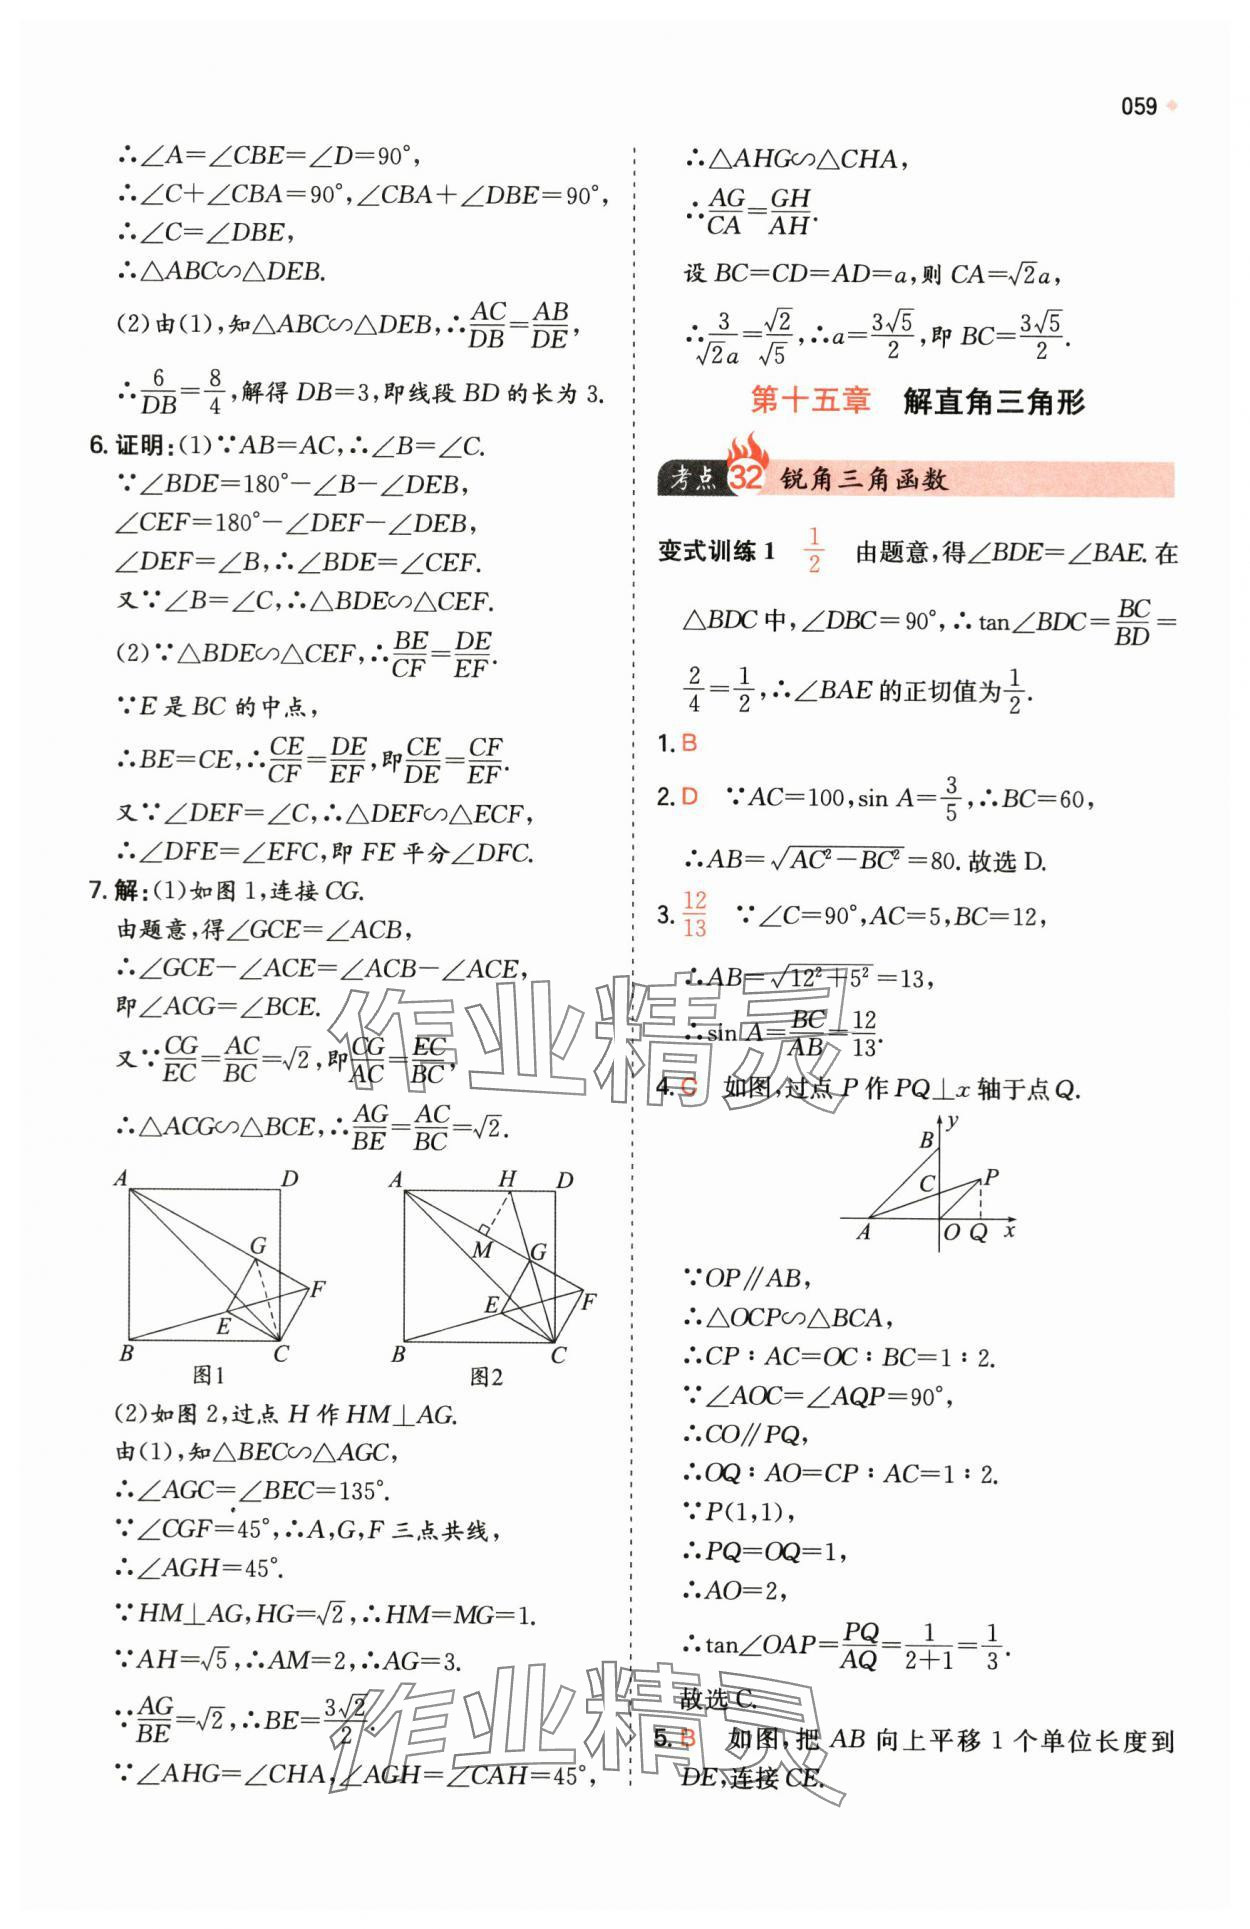 059
∴∠A=∠CBE=∠D=90°,
∴∠C+∠CBA=90°,∠CBA+∠DBE=90°,
∴∠C=∠DBE,
∴△ABC∽△DEB.
(2)由(1),知△ABC∽△DEB,∴AC/DB=AB/DE,
∴6/DB=8/4,解得DB=3,即线段BD的长为3.
6. 证明:(1)∵AB=AC,∴∠B=∠C.
∵∠BDE=180°-∠B-∠DEB,
∠CEF=180°-∠DEF-∠DEB,
∠DEF=∠B,∴∠BDE=∠CEF.
又∵∠B=∠C,∴△BDE∽△CEF.
(2)∵△BDE∽△CEF,∴BE/CF=DE/EF.
∵E是BC的中点,
∴BE=CE,∴CE/CF=DE/EF,即CE/DE=CF/EF.
又∵∠DEF=∠C,∴△DEF∽△ECF,
∴∠DFE=∠EFC,即FE平分∠DFC.
7. 解:(1)如图1,连接CG.
由题意,得∠GCE=∠ACB,
∴∠GCE-∠ACE=∠ACB-∠ACE,
即∠ACG=∠BCE.
又∵CG/EC=AC/BC=√2,即CG/AC=EC/BC,
∴△ACG∽△BCE,∴AG/BE=AC/BC=√2.
A D G F E B C
图1
A H D M G E F B C
图2
(2)如图2,过点H作HM⊥AG.
由(1),知△BEC∽△AGC,
∴∠AGC=∠BEC=135°.
∵∠CGF=45°,∴A,G,F三点共线,
∴∠AGH=45°.
∵HM⊥AG,HG=√2,∴HM=MG=1.
∵AH=√5,∴AM=2,∴AG=3.
∵AG/BE=√2,∴BE=3√2/2.
∵∠AHG=∠CHA,∠AGH=∠CAH=45°,
∴△AHG∽△CHA,
∴AG/CA=GH/AH.
设BC=CD=AD=a,则CA=√2a,
∴3/√2a=√2/√5,∴a=3√5/2,即BC=3√5/2.
第十五章 解直角三角形
考点 32 锐角三角函数
变式训练1 1/2 由题意,得∠BDE=∠BAE.在
△BDC中,∠DBC=90°,∴tan∠BDC=BC/BD=
2/4=1/2,∴∠BAE的正切值为1/2.
1. B
2. D ∵AC=100,sin A=3/5,∴BC=60,
∴AB=√(AC²-BC²)=80.故选D.
3. 12/13 ∵∠C=90°,AC=5,BC=12,
∴AB=√(12²+5²)=13,
∴sin A=BC/AB=12/13.
4. C 如图,过点P作PQ⊥x轴于点Q.
y B C P A O Q x
∵OP∥AB,
∴△OCP∽△BCA,
∴CP∶AC=OC∶BC=1∶2.
∵∠AOC=∠AQP=90°,
∴CO∥PQ,
∴OQ∶AO=CP∶AC=1∶2.
∵P(1,1),
∴PQ=OQ=1,
∴AO=2,
∴tan∠OAP=PQ/AQ=1/(2+1)=1/3.
故选C.
5. B 如图,把AB向上平移1个单位长度到
DE,连接CE.
作业精灵
作业精灵